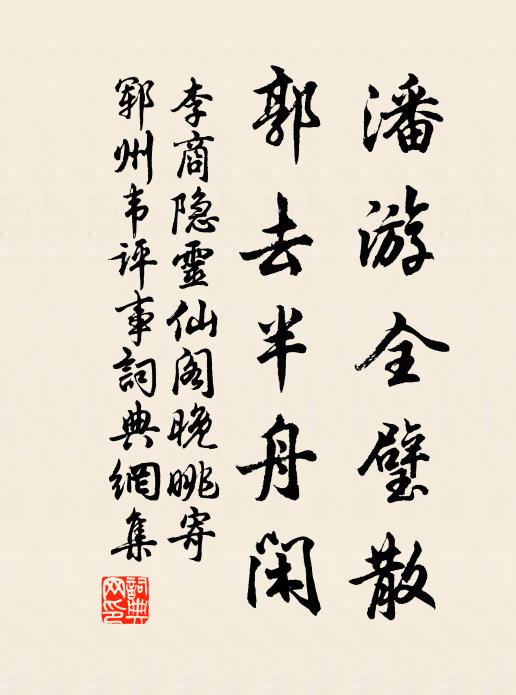 潘游全璧散
郭去半舟閑
李商隐靈仙阁晚眺寄
鄆州韦评事詞典網集
詞典網印